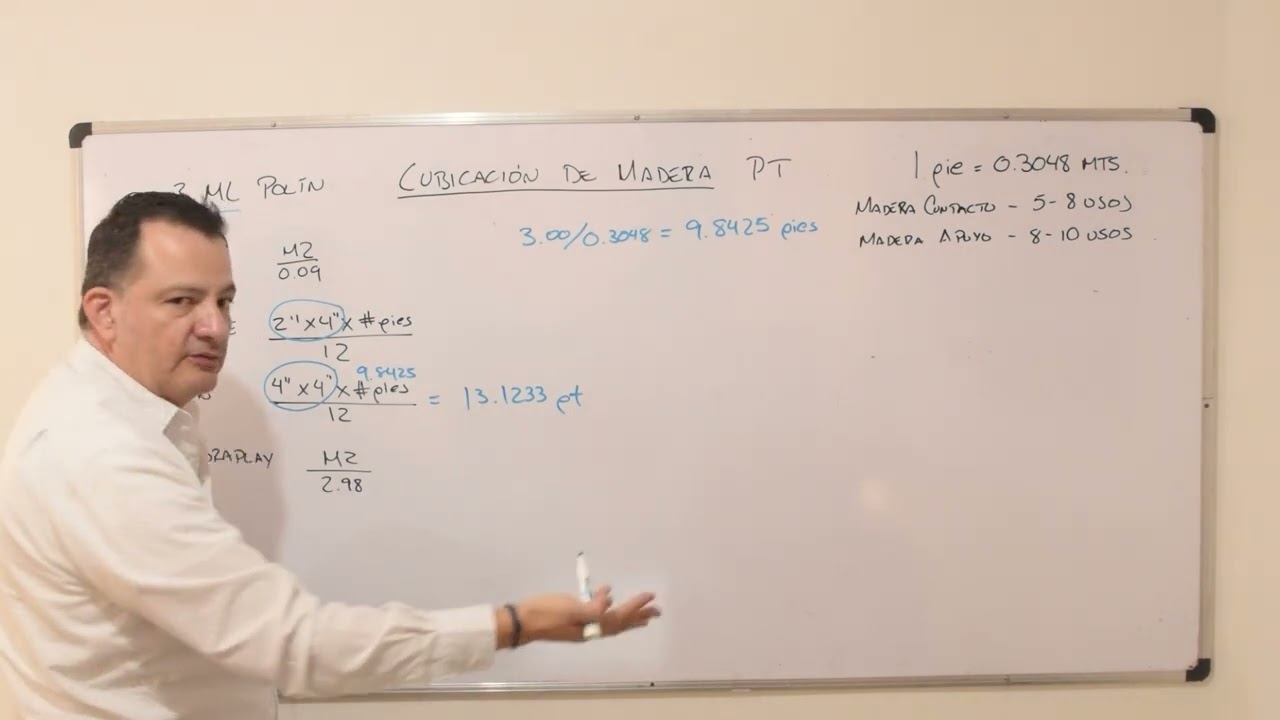 3 ML POLÍN
CUBICACIÓN DE MADERA PT
1 pie = 0.3048 MTS.
MADERA CONTACTO - 5-8 USOS
MADERA APOYO - 8-10 USOS
3.00/0.3048 = 9.8425 pies
M2
0.09
2" x 4" x # pies
12
9.8425
4" x 4" x # pies
12
= 13.1233 pt
M2
2.98